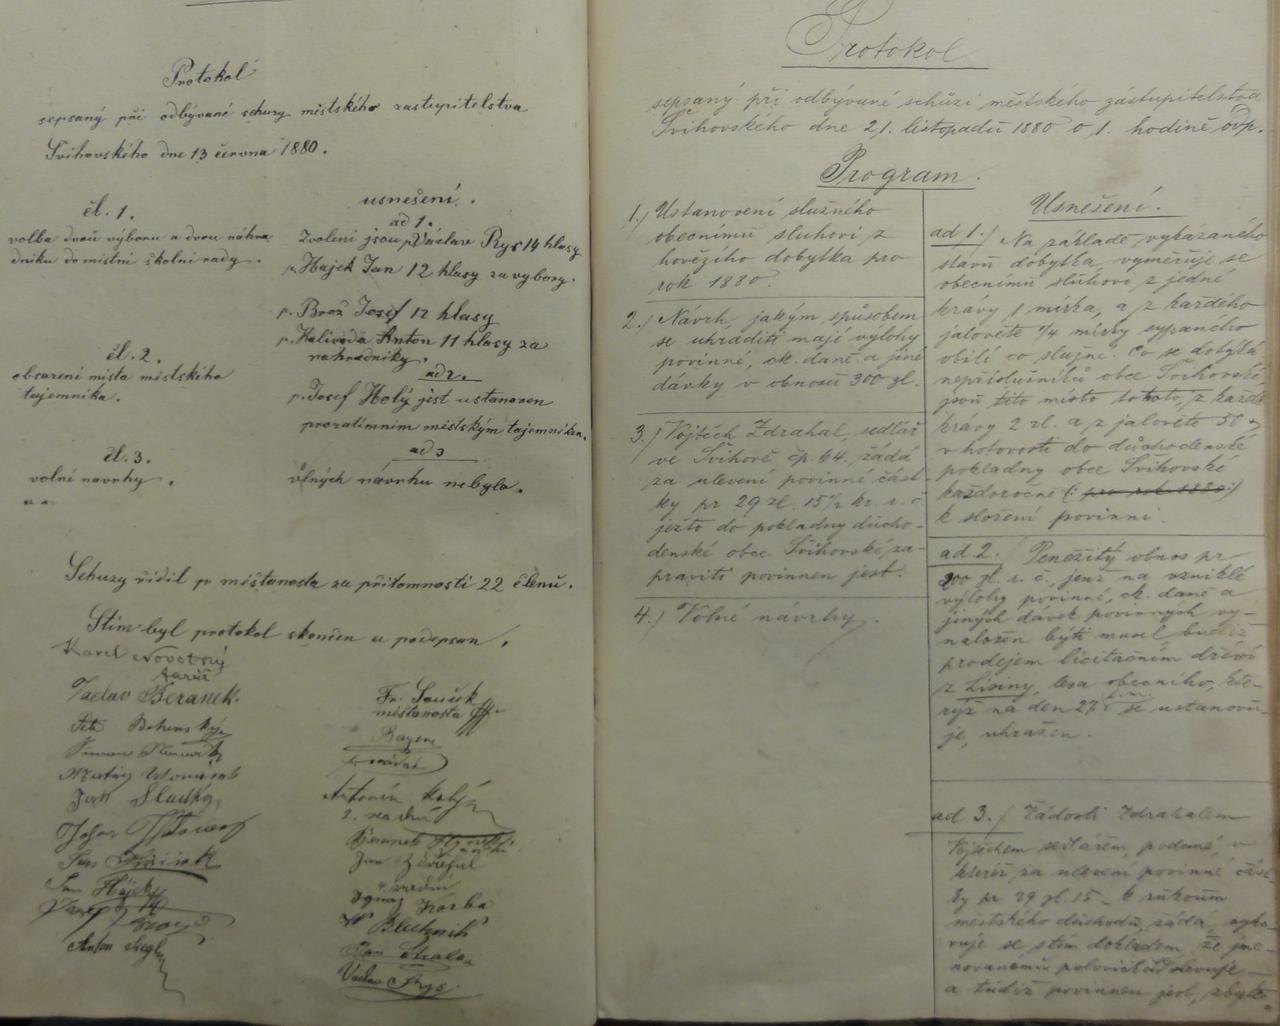 Protokol
sepsaný při odbývané schuzy městského zastupitelstva
Švihovského dne 13 června 1880.
čl. 1.
volba dvou výboru a dvou náhra
dníku do místní školní rady.
čl. 2.
obsazení místa městského
tajemníka.
čl. 3.
volní návrhy.
usnešení.
ad 1.
Zvoleni jsou p. Václav Rys 14 hlasy
p. Hajek Jan 12 hlasy za vybory.
p. Brož Josef 12 hlasy
p. Kalivoda Anton 11 hlasy za
náhradníky.
ad 2.
p. Josef Holý jest ustanoven
prozatimním městským tajemníkem.
ad 3
volných návrhu nebylo.
Schuzy řídil p. měšťanosta za přítomnosti 22 členů.
Stím byl protokol skončen a podepsan.
Karel Novotný
Vaclav Beranek.
Jan Sladký
Jan Hájek
Anton
Fr. Souček
měšťanosta
Antonín Kalý
2. radní
Jan
4. radní
Ignaz Korba
Václav Rys.
Protokol
sepsaný při odbývané schůzi městského zástupitelstva
Švihovského dne 21. listopadu 1880 o 1. hodině odp.
Program.
1./ Ustanovení služného
obecnímu sluhovi z
hovězího dobytka pro
rok 1880.
2./ Návrh, jakým spůsobem
se uhraditi mají výlohy
povinné, ck. daně a jiné
dávky v obnosu 300 zl.
3./ Vojtěch Zdrahal, sedlář
ve Švihově čp. 64. žádá
za ulevení povinné část-
ky pr 29 zl. 15½ kr. r. č.
ježto do pokladny důcho-
denské obce Švihovské za-
praviti povinnen jest.
4./ Volné návrhy.
Usnešení.
ad 1./ Na základě vykazaného
stavu dobytka, vyměřuje se
obecnímu sluhovi z jedné
krávy 1 mírka, a z každého
jalověte ¼ mírky sypaného
obilí co služné. Co se dobytka
nepříslušníků obce Švihovské,
jsou tito místo tohoto, z každé
krávy 2 zl. a z jalověte 50
v hotovosti do důchodenské
pokladny obce Švihovské
každoročně (: pro rok 1880 :)
k složení povinni.
ad 2./ Peněžitý obnos pr
300 zl. r. č., jenž na vzniklé
výlohy povinné, ck. daně a
jiných dávek povinných vy-
naložen býti musel budiž
prodejem licitačním dříví
z Lisiny, lesa obecního, kte-
rýž na den 27. t. m. se ustanovu-
je, uhražen.
ad 3./ Žádosti Zdrahalem
Vojtěchem sedlářem, podané, v
kteréž za ulevení povinné část-
ky pr 29 zl 15 k rukoum
městského důchodu, žádá, vyho-
vuje se stím dokladem, že jme-
novanému polovici slevuje
a tudíž povinnen jest, zbytek